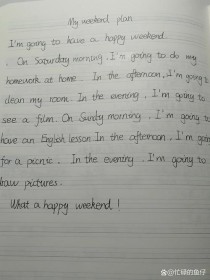 My weekend plan
I'm going to have a happy weekend.
. On Saturday morning, I'm going to do my
homework at home. In the afternoon, I'm going to
clean my room. In the evening, I'm going to
see a film. On Sundy morning, I'm going to
have an English lesson In the afternoon, I'm going
for a picnic. In the evening, I'm going to
draw pictures.
What a happy weekend!
@忙碌的鱼仔